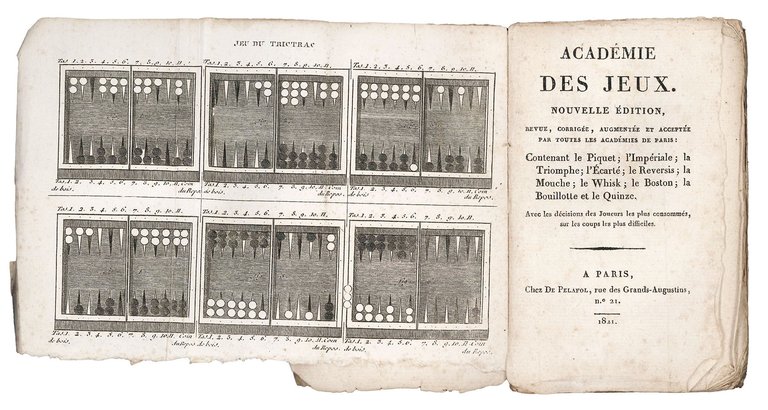 JEU DU TRICTRAC
Tas. 1. 2. 3. 4. 5. 6. 7. 8. 9. 10. 11. Tas. 1. 2. 3. 4. 5. 6. 7. 8. 9. 10. 11. Tas. 1. 2. 3. 4. 5. 6. 7. 8. 9. 10. 11.
Tas. 1. 2. 3. 4. 5. 6. 7. 8. 9. 10. 11. Coin Tas. 1. 2. 3. 4. 5. 6. 7. 8. 9. 10. 11. Coin Tas. 1. 2. 3. 4. 5. 6. 7. 8. 9. 10. 11. Coin
de bois. du Repos. de bois. du Repos. de bois. du Repos.
Tas. 1. 2. 3. 4. 5. 6. 7. 8. 9. 10. 11. Tas. 1. 2. 3. 4. 5. 6. 7. 8. 9. 10. 11. Tas. 1. 2. 3. 4. 5. 6. 7. 8. 9. 10. 11.
Tas. 1. 2. 3. 4. 5. 6. 7. 8. 9. 10. 11. Coin Tas. 1. 2. 3. 4. 5. 6. 7. 8. 9. 10. 11. Coin Tas. 1. 2. 3. 4. 5. 6. 7. 8. 9. 10. 11. Coin
de bois. du Repos. de bois. du Repos. de bois. du Repos.
ACADÉMIE
DES JEUX.
NOUVELLE ÉDITION,
REVUE, CORRIGÉE, AUGMENTÉE ET ACCEPTÉE
PAR TOUTES LES ACADÉMIES DE PARIS:
Contenant le Piquet; l'Impériale; la
Triomphe; l'Écarté; le Reversis; la
Mouche; le Whisk; le Boston; la
Bouillotte et le Quinze.
Avec les décisions des Joueurs les plus consommés,
sur les coups les plus difficiles.
A PARIS,
Chez DE PELAFOL, rue des Grands-Augustius,
n.º 21.
1821.